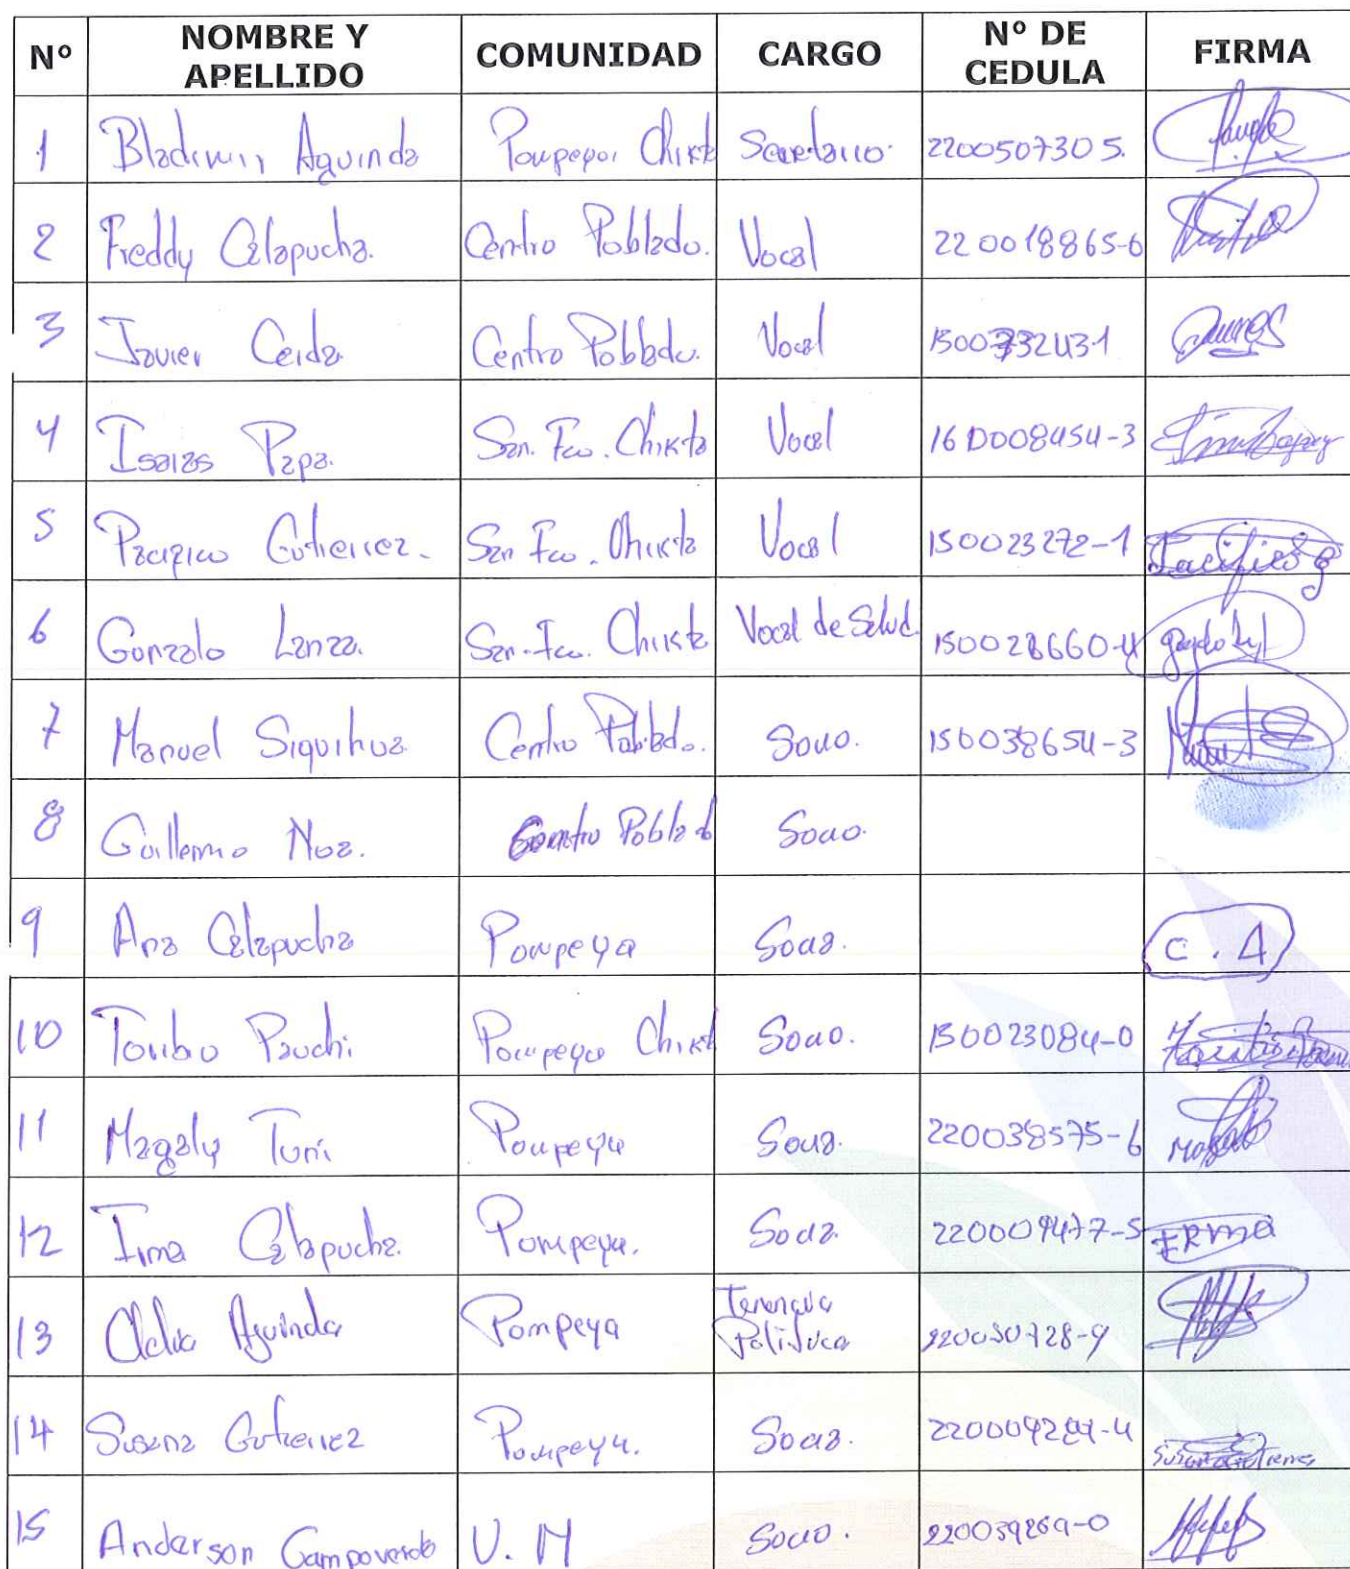 Nº NOMBRE Y APELLIDO COMUNIDAD CARGO Nº DE CEDULA FIRMA
1 Bladimir Aguinda Pompeya Chikta Secretario. 2200507305.
2 Freddy Calapucha. Centro Poblado. Vocal 220018865-6
3 Javier Cerda Centro Poblado. Vocal
4 Isaias Papa. San. Fco. Chikta Vocal
5 Pacifico Gutierrez. San Fco. Chikta Vocal 150023272-1 Pacifico g
6 Gonzalo Lanza. San. Fco. Chikta Vocal de Salud.
7 Manuel Siquihua Centro Poblado. Socio. 150038654-3
8 Guillermo Noa. Centro Poblado Socio.
9 Ana Calapucha Pompeya Socia. C . A
10 Toribio Pauchi. Pompeya Chikt Socio. 150023084-0
11 Magaly Tunri Pompeya Socia. 220038575-6
12 Irma Calapucha. Pompeya. Socia. 220009477-5 IRMa
13 Aguinda Pompeya Politica
14 Susana Gutierrez Pompeya. Socia.
15 Anderson Campoverde U. M Socio. 220039269-0